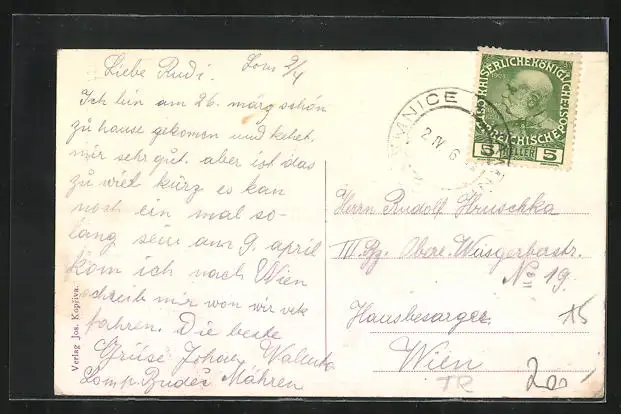 Liebe Rudi. Lom 2/4
Ich bin am 26. märz schön
zu hause gekomen und
mir sehr gut. aber ist das
zu wiel kürz es kan
noch ein mal so-
lang sein am 9. april
kom ich nach Wien
schreib mir won wir
fahren. Die beste
Grüse
Lom p. Budeč Mähren
Verlag Jos. Kopřiva.
MNICE
2 IV 6
KAISERLICHE KÖNIGLICHE
ÖSTERREICHISCHE POST
1908
5 HELLER 5
Herrn Rudolf Hruschka
III. Bz. Obere Weisgerberstr.
No 19.
Hausbesorger
Wien
15
TR
200